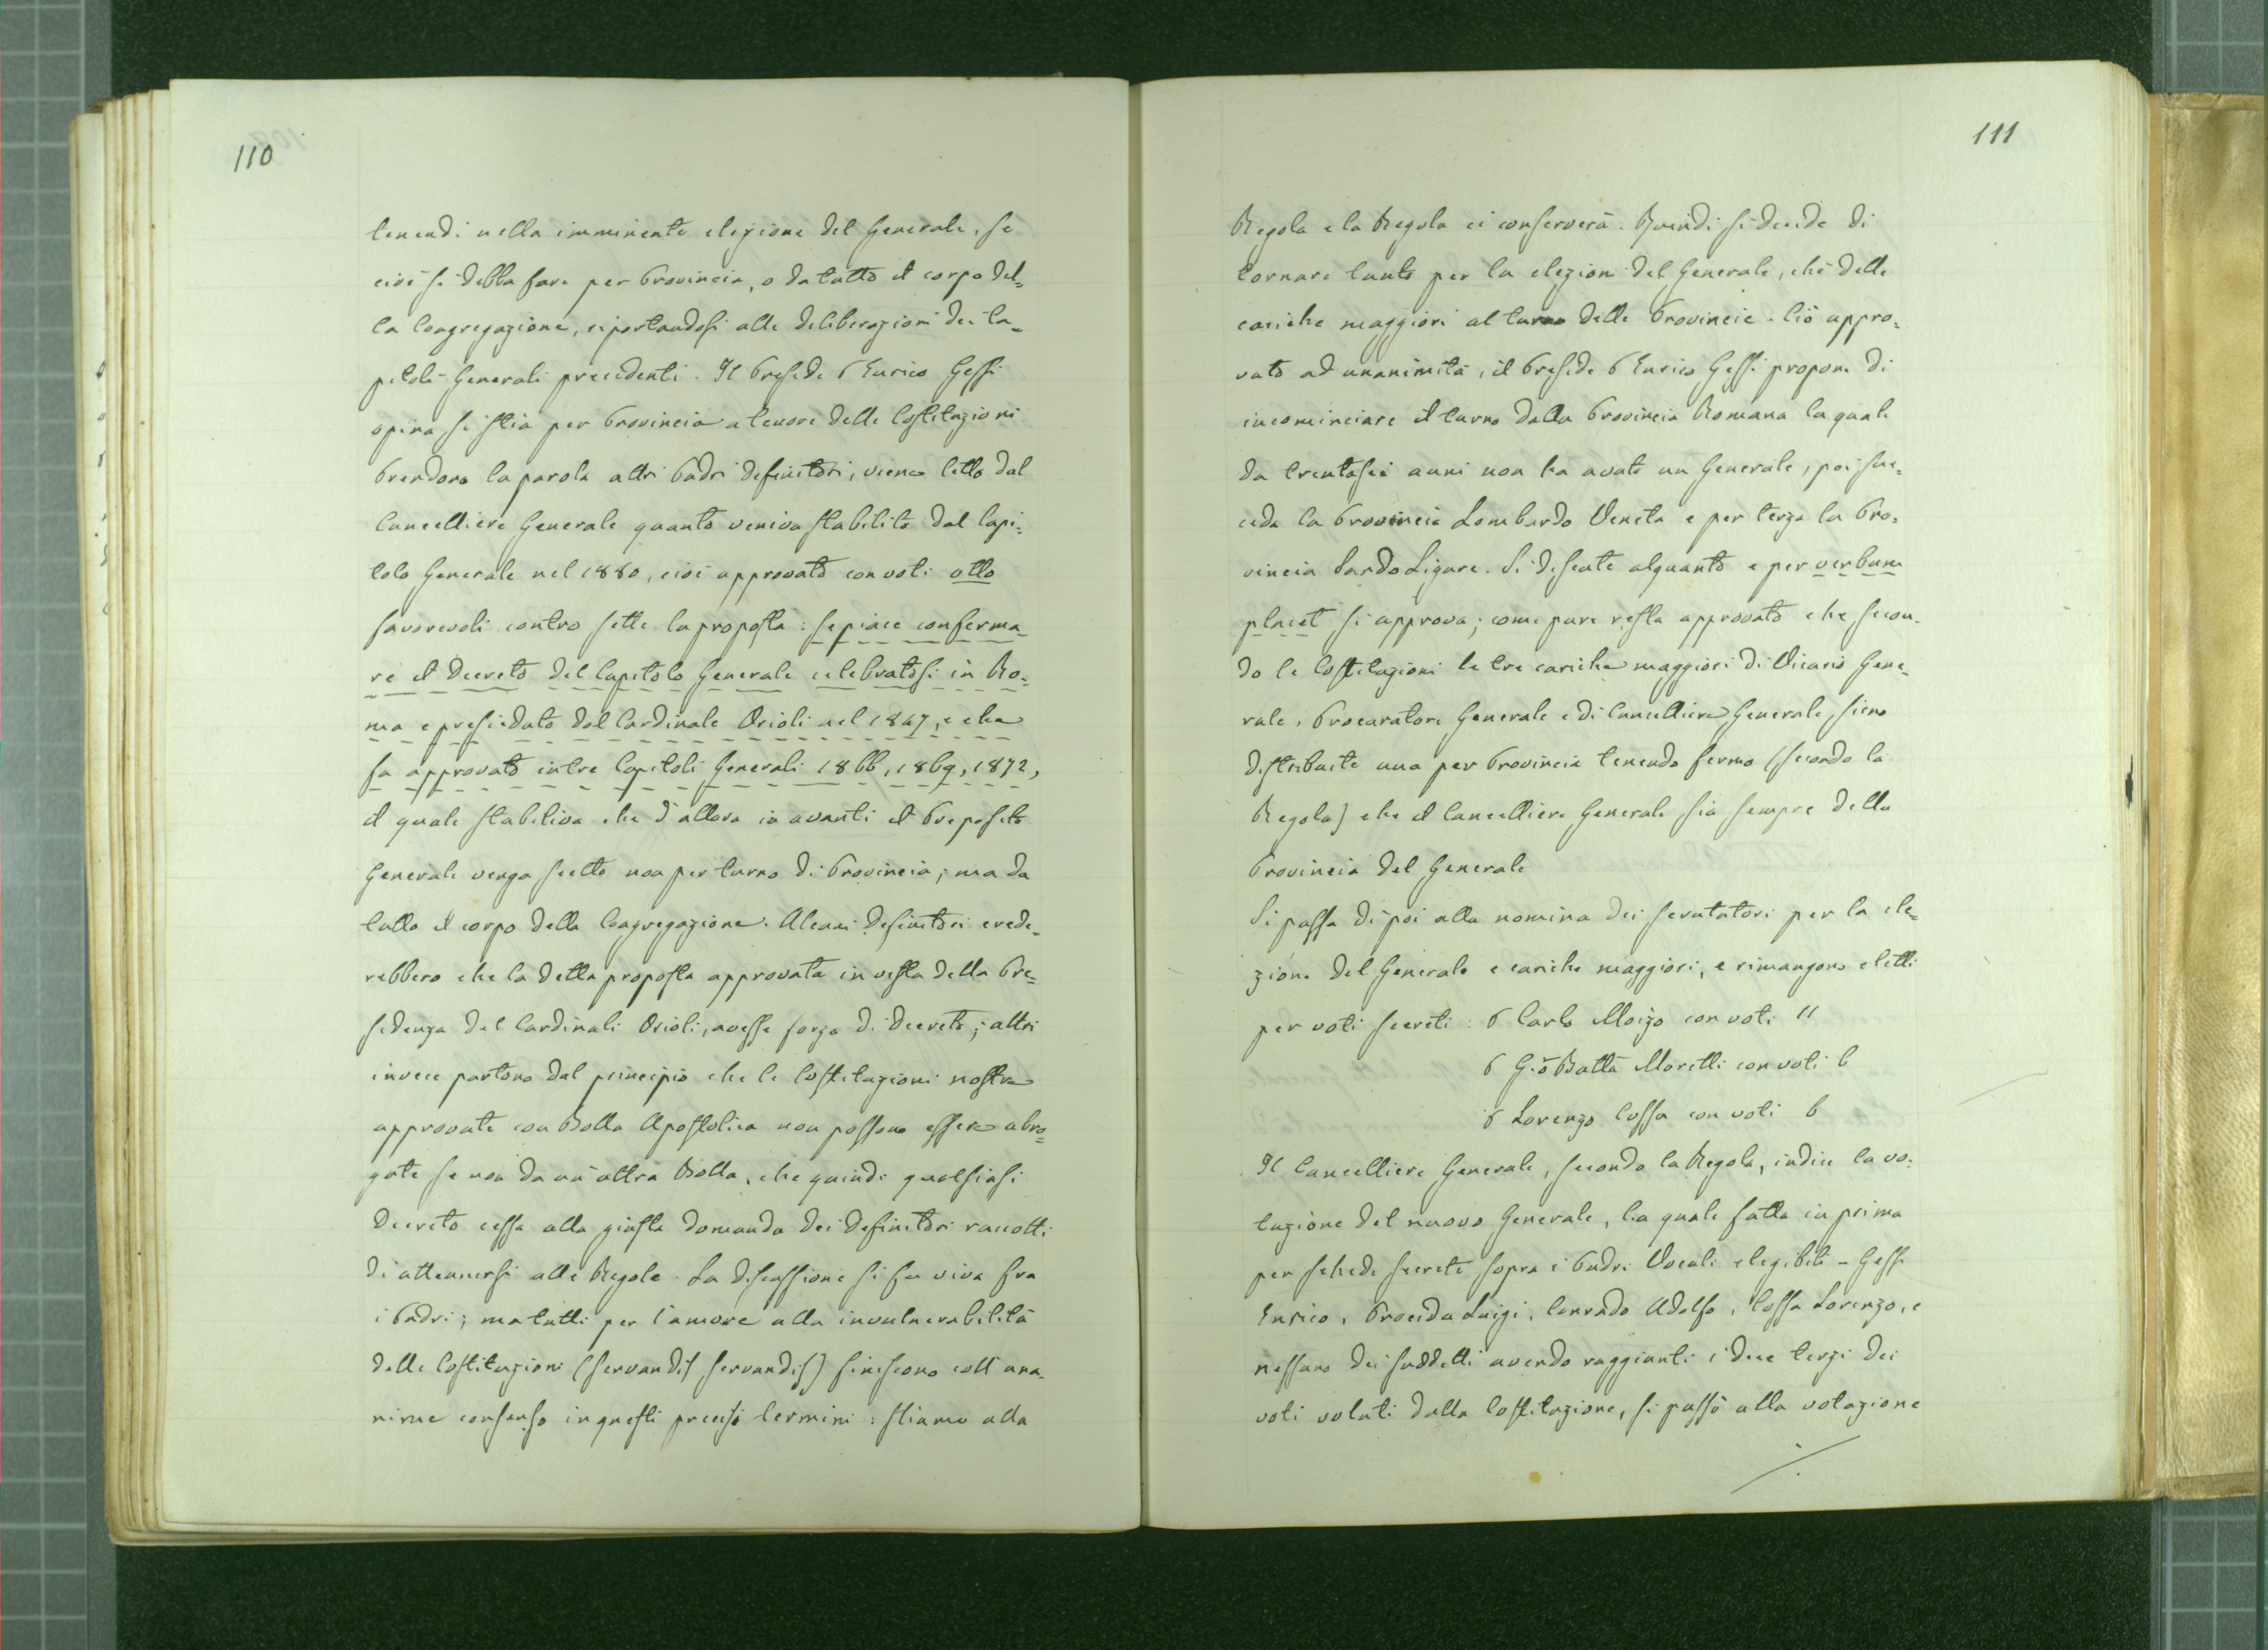 110
tenendi nella imminente elezione del Generale, se
cioè si debba fare per Provincia, o da tutto il corpo del=
la Congregazione, riportandosi alle deliberazioni dei Ca=
pitoli Generali precedenti. Il Preside P Enrico Gessi
opina si stia per Provincia a tenore delle Costituzioni
Prendono la parola altri Padri Definitori, viene letto dal
Cancelliere Generale quanto veniva stabilito dal Capi=
tolo Generale nel 1880, cioè approvato con voti otto
favorevoli contro sette la proposta: se piace conferma=
re il Decreto del Capitolo Generale celebratosi in Ro=
ma e presiedato dal Cardinale Orioli nel 1847, e che
fu approvato in tre Capitoli Generali 1866, 1869, 1872,
il quale stabiliva che d'allora in avanti il Preposito
Generale venga scelto non per turno di Provincia; ma da
tutto il corpo della Congregazione. Alcuni Definitori crede=
rebbero che la detta proposta approvata in vista della Pre=
sidenza del Cardinali Orioli, avesse forza di Decreto; altri
invece partono dal principio che le Costituzioni nostre
approvate con Bolla Apostolica non possono essere abro=
gate se non da un'altra Bolla, che quindi qualsiasi
Decreto cessa alla giusta domanda dei Definitori raccolti
di attenersi alle Regole. La discussione si fu viva fra
i Padri; ma tutti per l'amore alla invulnerabilità
delle Costituzioni (servandis servandis) finiscono coll'una=
nime consenso in questi precisi termini: stiamo alla
111
Regola e la Regola ci conserverà. Quindi si decide di
tornare tanto per la elezion del Generale, che delle
cariche maggiori al turno delle Provincie. Ciò appro=
vato ad unanimità, il Preside P Enrico Gessi propone di
incominciare il turno dalla Provincia Romana la quale
da trentasei anni non ha avuto un Generale, poi suc=
ceda la Provincia Lombardo Veneta e per terza la Pro=
vincia Sardo Ligure. Si discute alquanto e per verbum
placet si approva; come pure resta approvato che secon=
do le Costituzioni le tre cariche maggiori di Vicario Gene=
rale, Procuratore Generale e di Cancelliere Generale, sieno
distribuite una per Provincia tenendo fermo (secondo la
Regola) che il Cancelliere Generale sia sempre della
Provincia del Generale
Si passa di poi alla nomina dei scrutatori per la ele=
zione del Generale e cariche maggiori, e rimangono eletti
per voti secreti: P Carlo Moizo con voti 11
P Gio Batta Moretti con voti 6
P Lorenzo Cossa con voti 6
Il Cancelliere Generale, secondo la Regola, indice la vo=
tazione del nuovo Generale, la quale fatta in prima
per schede secrete sopra i Padri Vocali elegibili - Gessi
Enrico, Procida Luigi, Conrado Adolfo, Cossa Lorenzo, e
nessuno dei suddetti avendo raggiunti i due terzi dei
voti voluti dalla Costituzione, si passò alla votazione